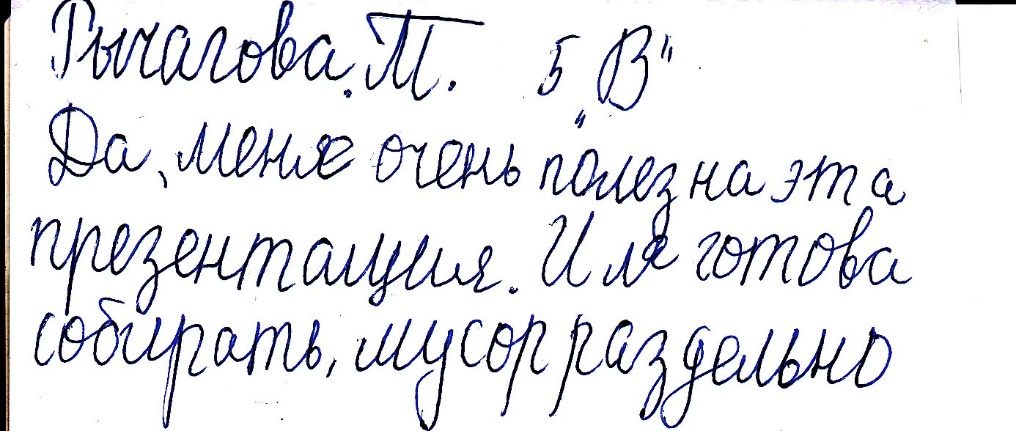 Рычагова. Т. 5 "В"
Да, меня очень полезна эта
презентация. И я готова
собирать, мусор раздельно